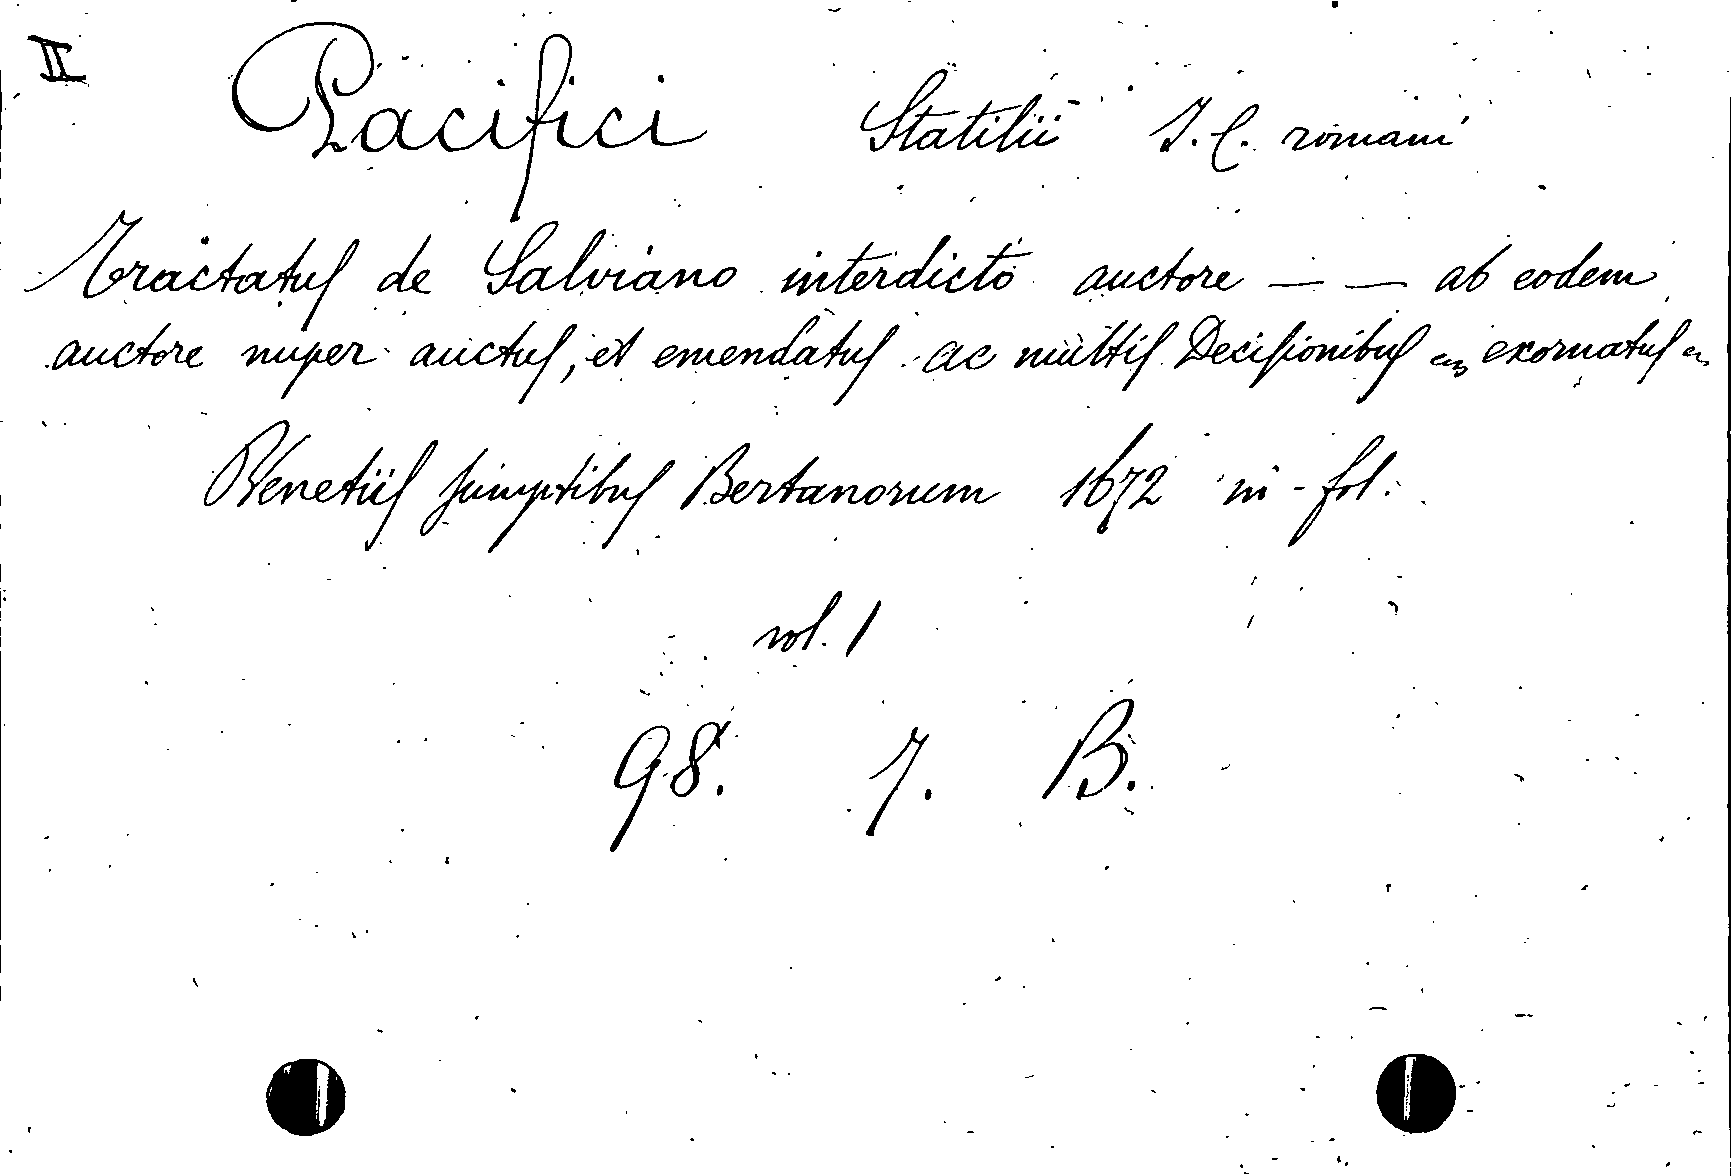 II
Pacifici Statilii J. C. romani
Tractatuſ de Salviano interdicto auctore — — ab eodem
auctore nuper auctuſ, et emendatuſ ac multiſ Deciſionibuſ exornatuſ
Venetiiſ ſumptibuſ Bertanorum 1672 in-fol.
vol. 1
98. 7. B.